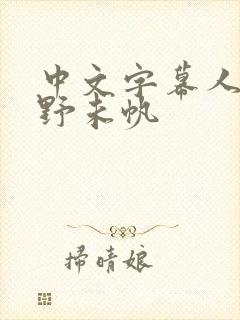 中文字幕人
野未帆
掃晴娘